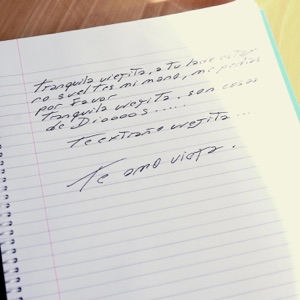 tranquila viejita, a tu lado estoy
no sueltes mi mano, me pedias
por favor
tranquila viejita. son cosas
de Dioooos.....
Te extraño viejita...
Te amo vieja.